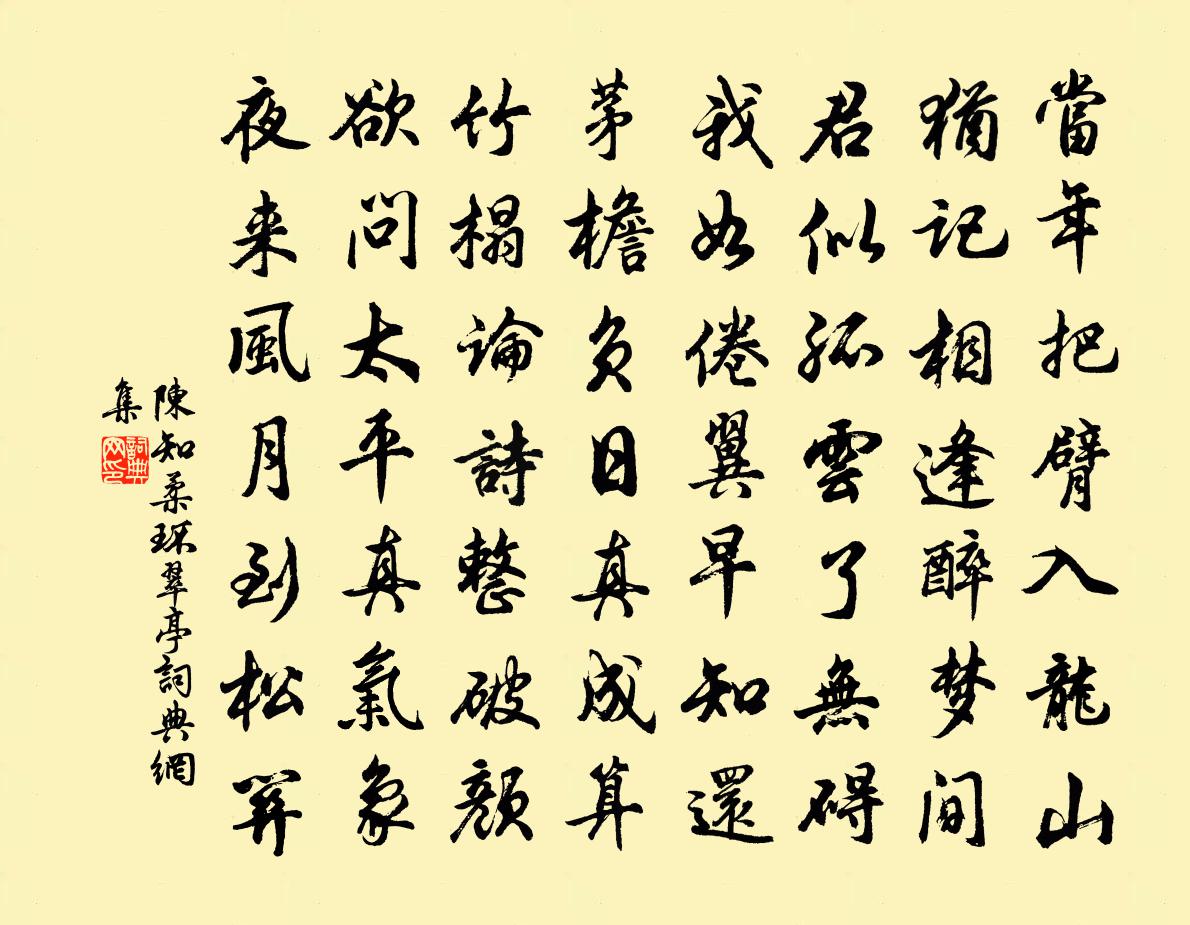 當年把臂入龍山
猶記相逢醉梦間
君似孤雲了無碍
我如倦翼早知還
茅檐負日真成算
竹榻論詩整破顏
欲問太平真氣象
夜来風月到松關
陳知柔環翠亭詞典網
集
詞典網印